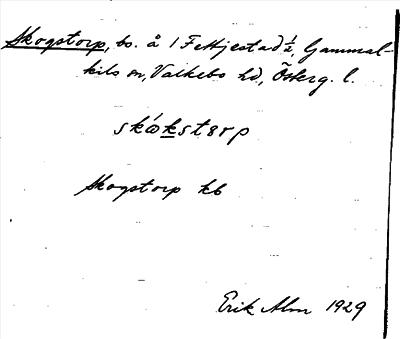 Skogstorp, bs. å 1 Fettjestad ½, Gammal-
kils sn, Valkebo hd, Österg. l.
skɷ́kstɛrp
Skogstorp kb
Erik Alm 1929